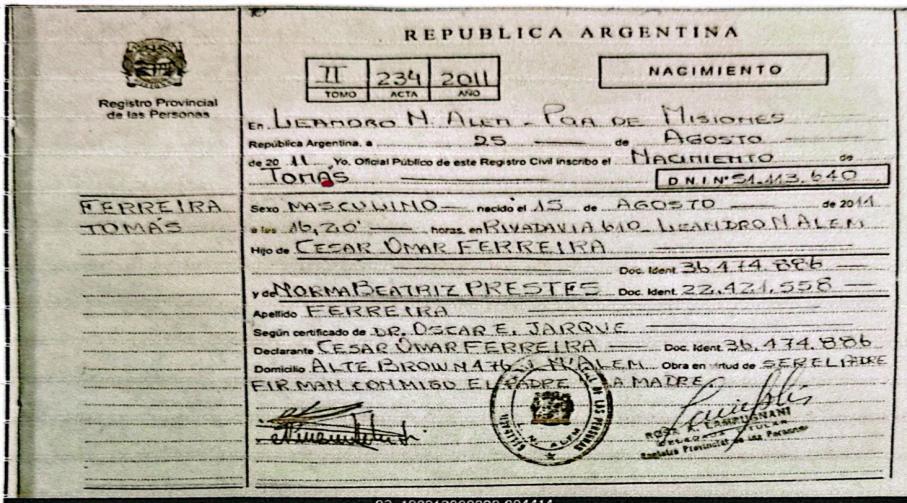 REPUBLICA ARGENTINA
II 234 2011
TOMO ACTA AÑO
NACIMIENTO
Registro Provincial
de las Personas
En LEANDRO N. ALEM - PCIA DE MISIONES
República Argentina, a 25 de AGOSTO
de 2011 Yo, Oficial Público de este Registro Civil inscribo el NACIMIENTO de
TOMÁS
D N.I. Nº 51.113.640
FERREIRA
TOMÁS
Sexo MASCULINO nacido el 15 de AGOSTO de 2011
a las 16,20 horas, en RIVADAVIA 610 LEANDRO N ALEM
Hijo de CESAR OMAR FERREIRA
Doc. Ident. 36.474.886
y de NORMA BEATRIZ PRESTES Doc. Ident. 22.421.558
Apellido FERREIRA
Según certificado de DR. OSCAR E. JARQUE
Declarante CESAR OMAR FERREIRA Doc. Ident. 36.474.886
Domicilio ALTE BROWN N. ALEM Obra en virtud de SER EL PADRE
FIRMAN CONMIGO EL PADRE LA MADRE
L. N. ALEM
DE LAS PERSONAS
LAMPUGNANI
TITULAR
Registro Provincial de las Personas